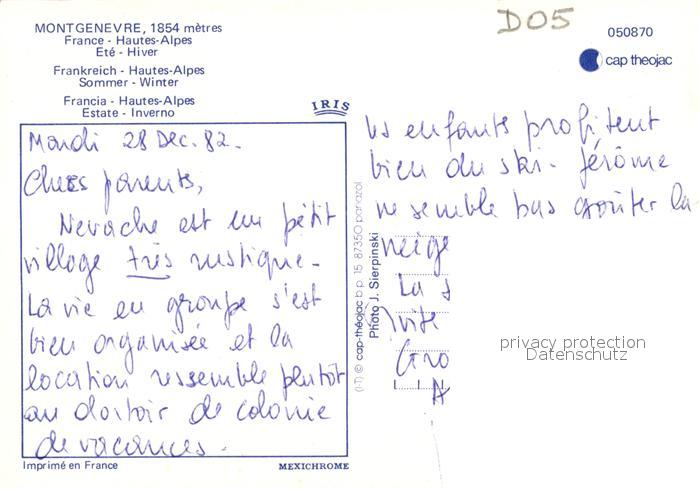 MONTGENEVRE, 1854 mètres
France - Hautes-Alpes
Eté - Hiver
Frankreich - Hautes-Alpes
Sommer - Winter
Francia - Hautes-Alpes
Estate - Inverno
IRIS
Mardi 28 Dec. 82.
Chers parents,
Nevache est un petit
village très rustique.
La vie en groupe s'est
bien organisée et la
location ressemble plutôt
au dortoir de colonie
de vacances.
Imprimé en France
MEXICHROME
(I-T) © cap-théojac b p. 15 87350 panazol
Photo J. Sierpinski
D05
050870
cap theojac
Les enfants profitent
bien du ski. Jérôme
ne semble pas goûter la
neige
La s
vite
Gro
A
privacy protection
Datenschutz